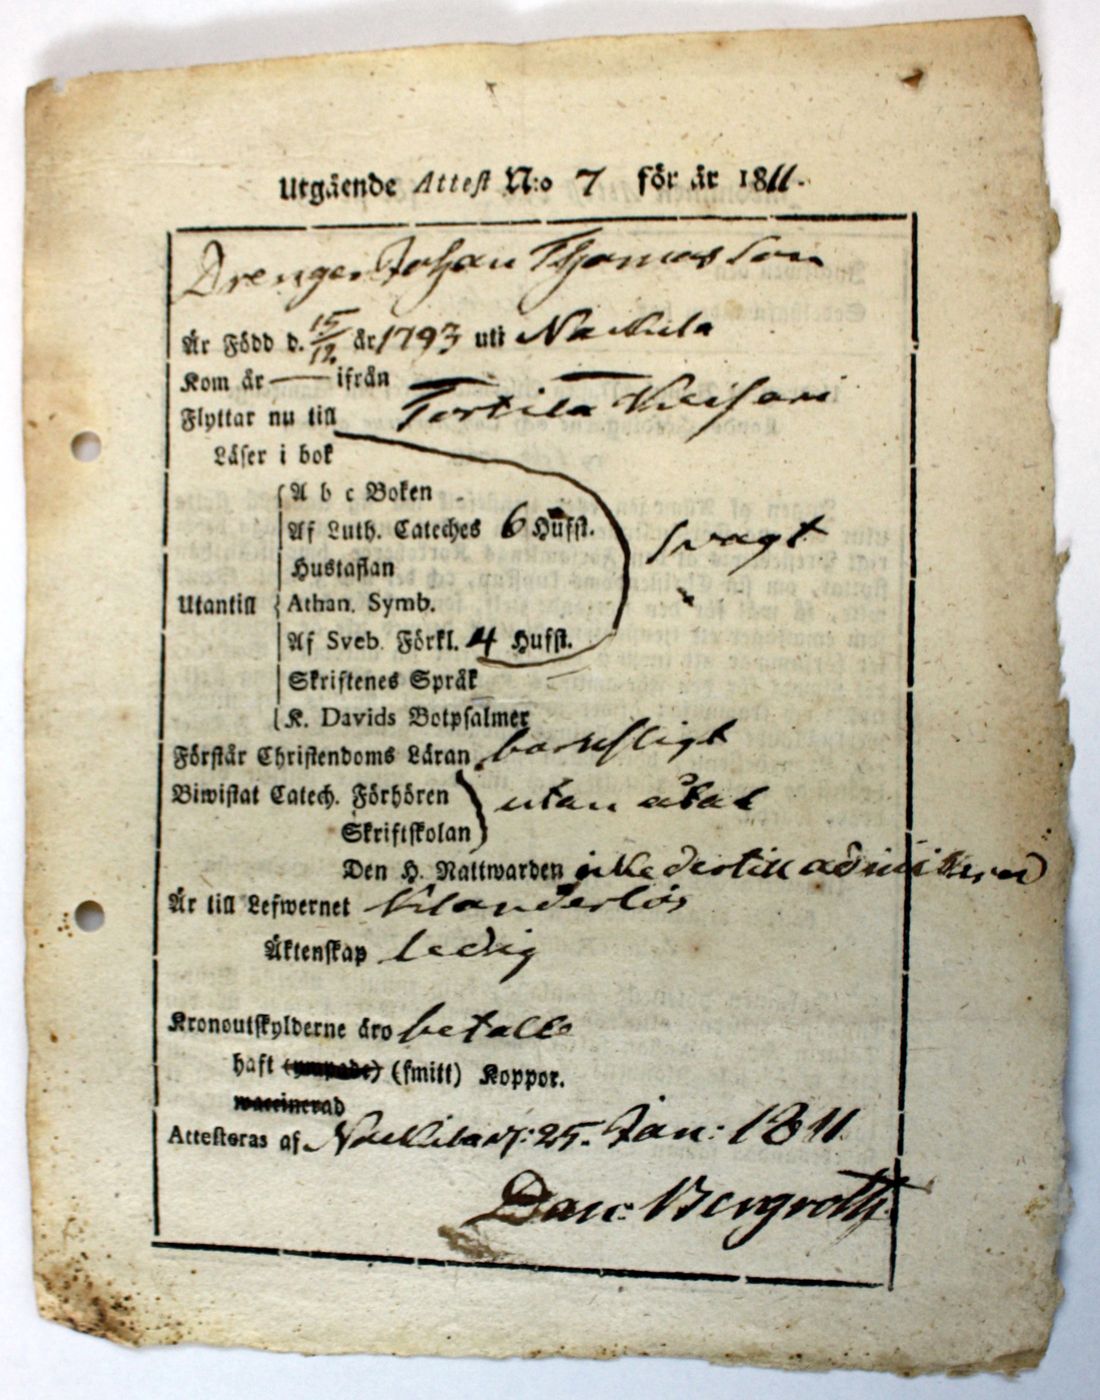 Utgående Attest N:o 7 för år 1811.
Drengen Johan Thomasson
Är Född d. 15/12 år 1793 uti Nackila
Kom år — ifrån
Flyttar nu till Tortila Keisari
Läser i bok
A b c Boken
Af Luth. Cateches 6 Hufst. svagt
Hustaflan
Utantill Athan. Symb.
Af Sveb. Förkl. 4 Hufst.
Skriftenes Språk
K. Davids Botpsalmer
Förstår Christendoms Läran
Biwistat Catech. Förhören utan åtal
Skriftskolan
Den H. Nattwarden icke dertill admitterad
Är till Lefwernet klanderlös
Äktenskap ledig
Kronoutskylderne äro betalte
haft (ympade) (smitt) Koppor.
waccinerad
Attesteras af Nackila d: 25. Jan: 1811.
Dan: Bergroth.